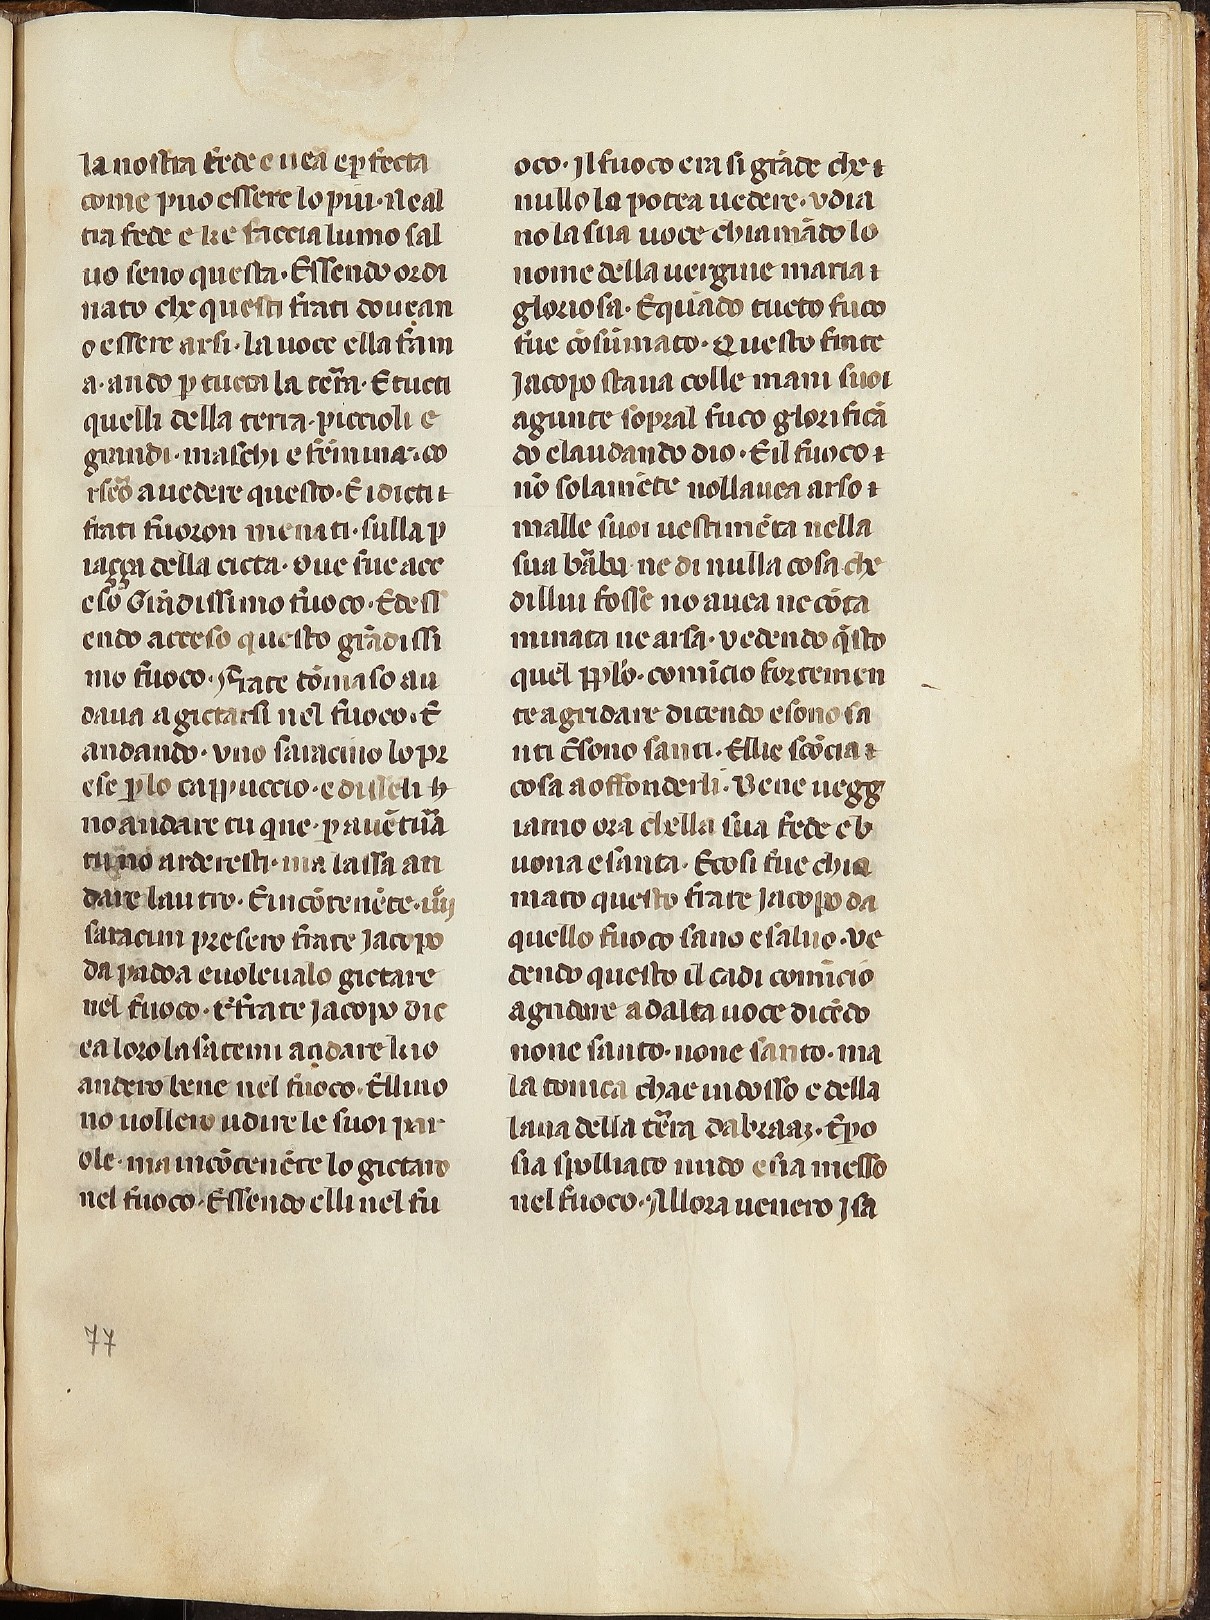 la nostra fede e uea e ꝑfecta
come puo essere lo piu · ne al
tra fede e ke faccia lumo sal
uo seno questa · Essendo ordi
nato che questi frati douean
o essere arsi · la uoce ella fām
a · ando ꝑ tucta la tērā · E tucti
quelli della terra · piccioli e
grandi · maschi e fēmina · co
rsero a uedere questo · E i dicti
frati fuoron menati · sulla p
iaçça della cicta · Oue fue acc
eso Grādissimo fuoco · Ed ess
endo acceso questo grādissi
mo fuoco · Frate tōmaso an
daua a gictarsi nel fuoco · E
andando · vno saracino lo pr
ese ꝑlo cappuccio · e disseli
no andare tu que · ꝑ auētūa
tu nō arderesti · ma lassa an
dare lautro · E incōtenēte · iiij
saracini presero frate Jacopo
da padoa e uoleualo gictare
nel fuoco · E frate Jacopo dic
ea loro lasatemi andare kio
andero bene nel fuoco · Elli no
no uollero udire le suoi par
ole · ma incōtenēte lo gictaro
nel fuoco · Essendo elli nel fu
oco · Il fuoco era si grāde che
nullo la potea uedere · vdia
no la sua uoce chiamādo lo
nome della uergine maria
gloriosa · E quādo tucto fuco
fue cōsūmato · Questo frate
Jacopo staua colle mani suoi
agunte sopral fuco glorificā
do e laudando dio · E il fuoco
nō solamēte nollauea arso
malle suoi uestimēta nella
sua bāba ne di nulla cosa che
dillui fosse no auea ne cōta
minata ne arsa · vedendo q̄sto
quel pplo · comīcio fortemen
te a gridare dicendo e sono sa
nti E sono santi · Ell e scōcia
cosa a offonderli · Bene uegg
iamo ora chella sua fede e b
uona e santa · E cosi fue chia
mato questo frate Jacopo da
quello fuoco sano e saluo · ve
dendo questo il cadi comīcio
a gridare ad alta uoce dicēdo
none santo · none santo · ma
la tonica chae indosso e della
lana della tērā dabraaʒ · E ꝑo
sia spolliato nudo e sia messo
nel fuoco · Allora venero J sa
77